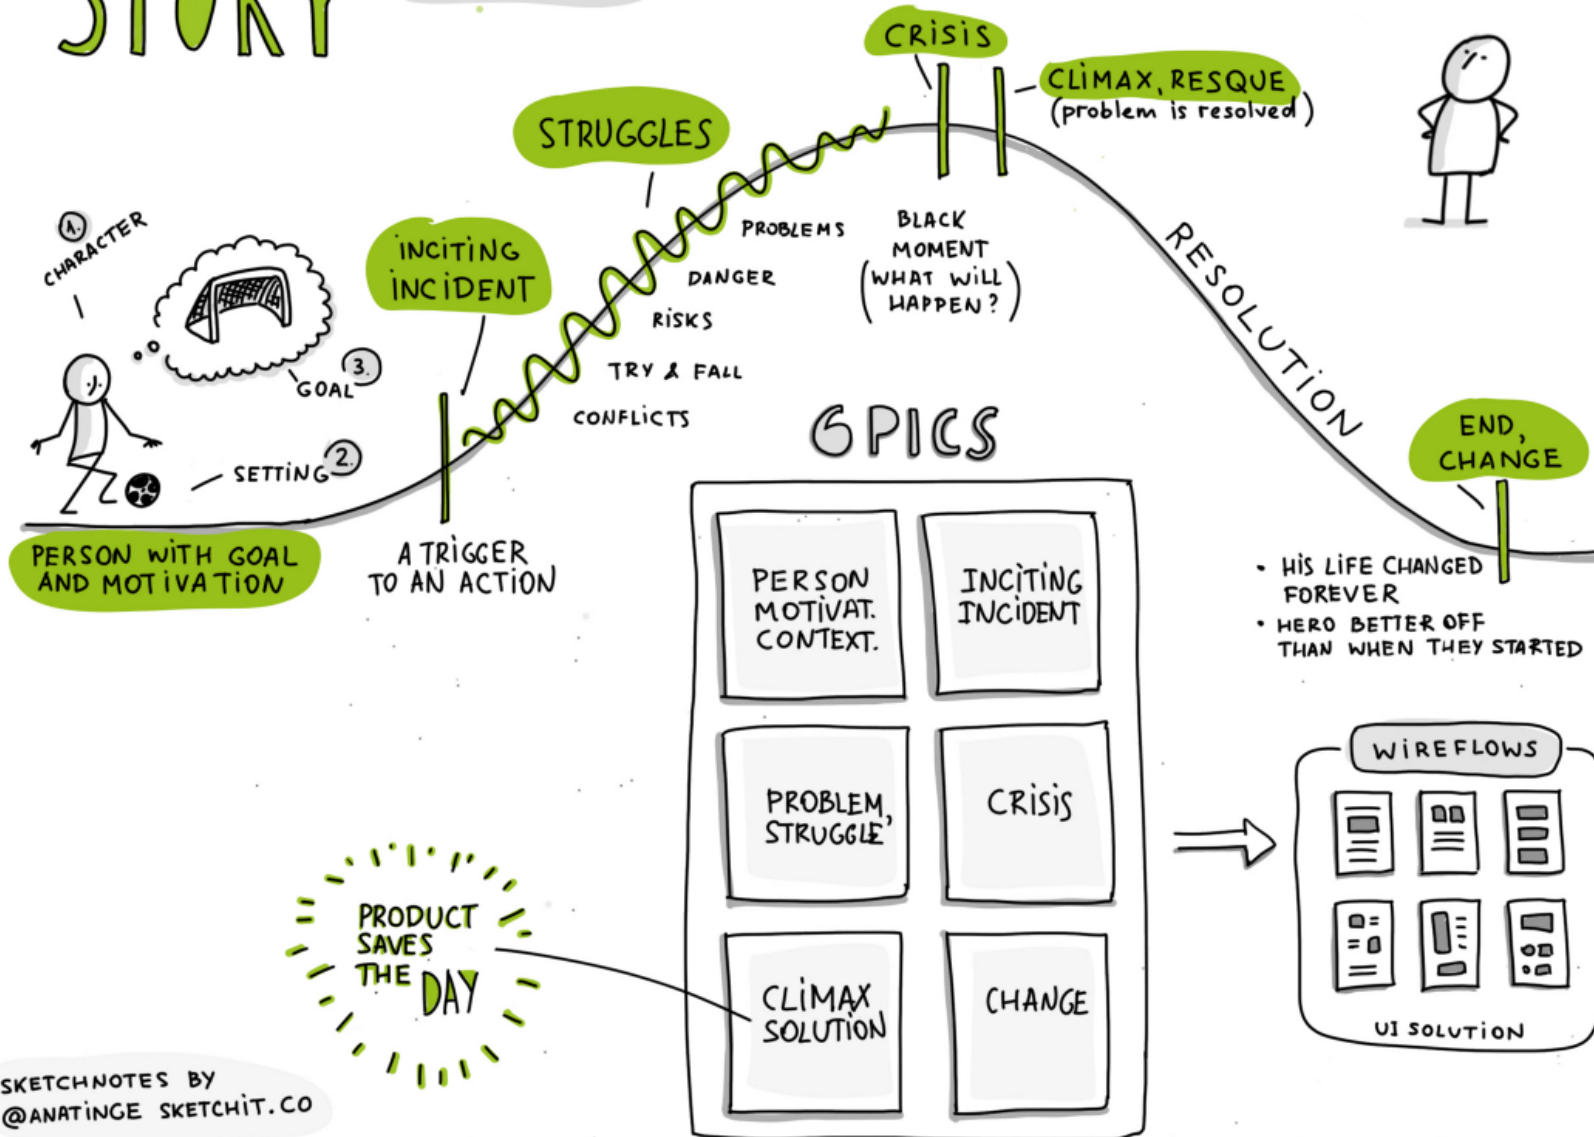 STORY
CRISIS
CLIMAX, RESQUE
(problem is resolved)
STRUGGLES
1.
CHARACTER
INCITING
INCIDENT
PROBLEMS
DANGER
RISKS
TRY & FALL
CONFLICTS
BLACK
MOMENT
(WHAT WILL
HAPPEN?)
RESOLUTION
GOAL 3.
SETTING 2.
PERSON WITH GOAL
AND MOTIVATION
A TRIGGER
TO AN ACTION
END,
CHANGE
• HIS LIFE CHANGED
FOREVER
• HERO BETTER OFF
THAN WHEN THEY STARTED
6 PICS
PERSON
MOTIVAT.
CONTEXT.
INCITING
INCIDENT
PROBLEM,
STRUGGLE
CRISIS
CLIMAX
SOLUTION
CHANGE
PRODUCT
SAVES
THE DAY
WIREFLOWS
UI SOLUTION
SKETCHNOTES BY
@ANATINGE SKETCHIT.CO